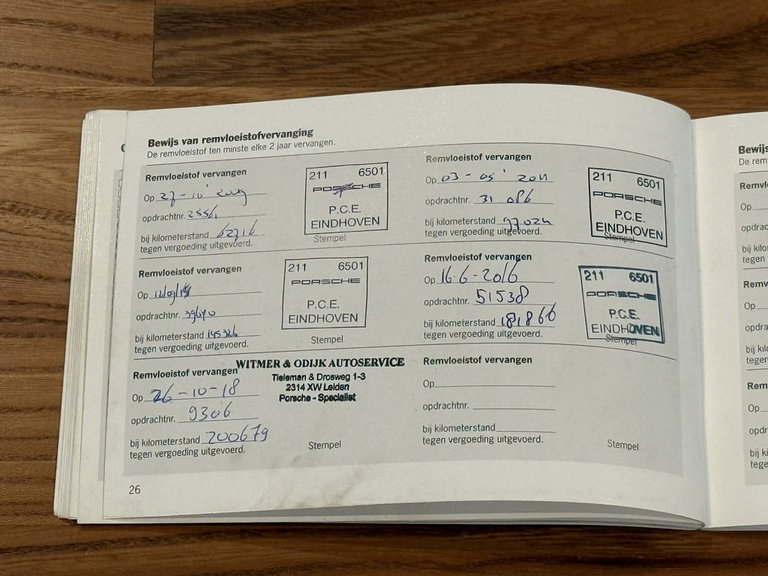 Bewijs van remvloeistofvervanging
De remvloeistof ten minste elke 2 jaar vervangen.
Remvloeistof vervangen
Op 27-10 2009
opdrachtnr.
bij kilometerstand 62716
tegen vergoeding uitgevoerd.
211 6501
PORSCHE
P.C.E.
EINDHOVEN
Stempel
Remvloeistof vervangen
Op 03-05 2011
opdrachtnr. 31 086
bij kilometerstand 97024
tegen vergoeding uitgevoerd.
211 6501
PORSCHE
P.C.E.
EINDHOVEN
Stempel
Remvloeistof vervangen
Op
opdrachtnr. 39670
bij kilometerstand 145326
tegen vergoeding uitgevoerd.
211 6501
PORSCHE
P.C.E.
EINDHOVEN
Stempel
Remvloeistof vervangen
Op 16-6-2016
opdrachtnr. 51538
bij kilometerstand 181866
tegen vergoeding uitgevoerd.
211 6501
PORSCHE
P.C.E.
EINDHOVEN
Stempel
Remvloeistof vervangen
Op 26-10-18
opdrachtnr. 9306
bij kilometerstand 200679
tegen vergoeding uitgevoerd.
WITMER & ODIJK AUTOSERVICE
Tieleman & Drosweg 1-3
2314 XW Leiden
Porsche - Specialist
Stempel
Remvloeistof vervangen
Op
opdrachtnr.
bij kilometerstand
tegen vergoeding uitgevoerd.
Stempel
26